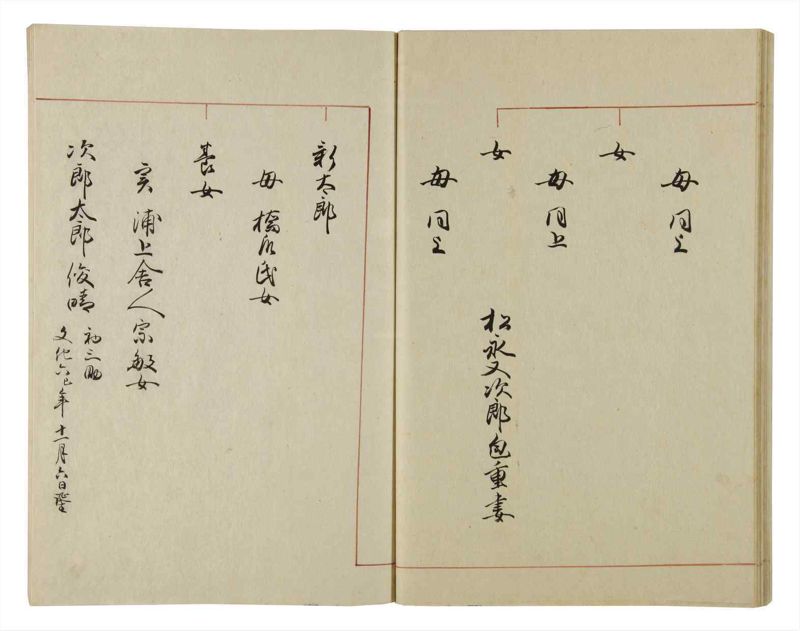 母 同上
女
母 同上
女 松永又次郎包重妻
母 同上
新太郎
母 橋爪氏女
養女
実 浦上舎人宗敏女
次郎太郎俊晴
初三助
文化六巳年十一月六日